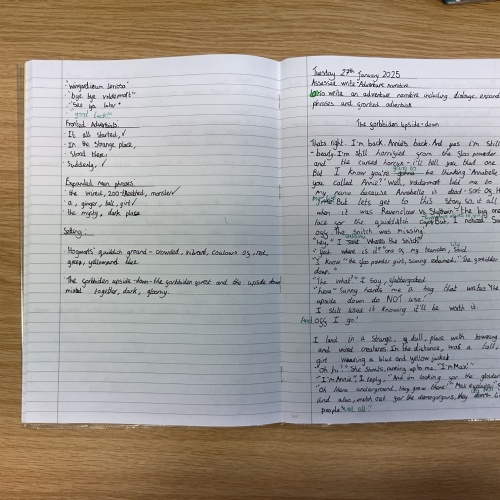 "Wingardium leviosa"
"bye bye voldemort"
"See ya later"
good luck!"
Fronted Adverbials:
· It all started, ✓
· In the Strange place,
· Stood there,
· Suddenly, ✓
Expanded noun phrases:
· the wired, 200-toothed, monster ✓
· a, ginger, tall, girl ✓
· the mysty, dark place
Setting:
· Hogwarts' quiditch ground - crowded, vibrant, coulours of, red,
green, yellow and blue
The forbidden upside-down - the forbidden forest and the upside down
mixed together, dark, gloomy.
Tuesday 27th January 2025
Assessed write - Adventure narrative
LO: to write an adventure narrative including dialoge, expand
phrases and fronted adverbials
The forbidden upside-down
Thats right. I'm back. Annie's back. And yes i'm still
- beady. I'm still horrifyed from the floo powder
and the cursed forest - i'll tell you that one
But I know you're going to be thinking "Annabelle
you called Annie?" Well, Voldermort told me to
my name because Annabelle is dead. Sort of. H
me. But lets get to this story. So, it all
when it was Ravenclaw Vs Slytherin - the big one
face for the quidditch cup. But, I noticed Som
off. The snitch was missing.
"Hey," I said "Where's the Snitch?"
"Yeah where is it?" one of my teamates said.
"I know" the floo powder girl, sunny exclamed. "The forbidden
down."
"The what?" I say, flabbergasted
"Here" Sunny hands me a bag that writes 'The
upside down do NOT use'.
I still used it knowing it'll be worth it.
And off I go!
I land in a strange, dull, place with towering
and wierd creatures. In the distance, was a tall,
girl wearing a blue and yellow jacket.
"Oh hi!" She shouts, running up to me. "I'm Max!"
"I'm Annie", I reply, "And im looking for the
"Oh there underground, they grow there!" Max
and also, watch out for the demogorgons, they don't li
people "at all".